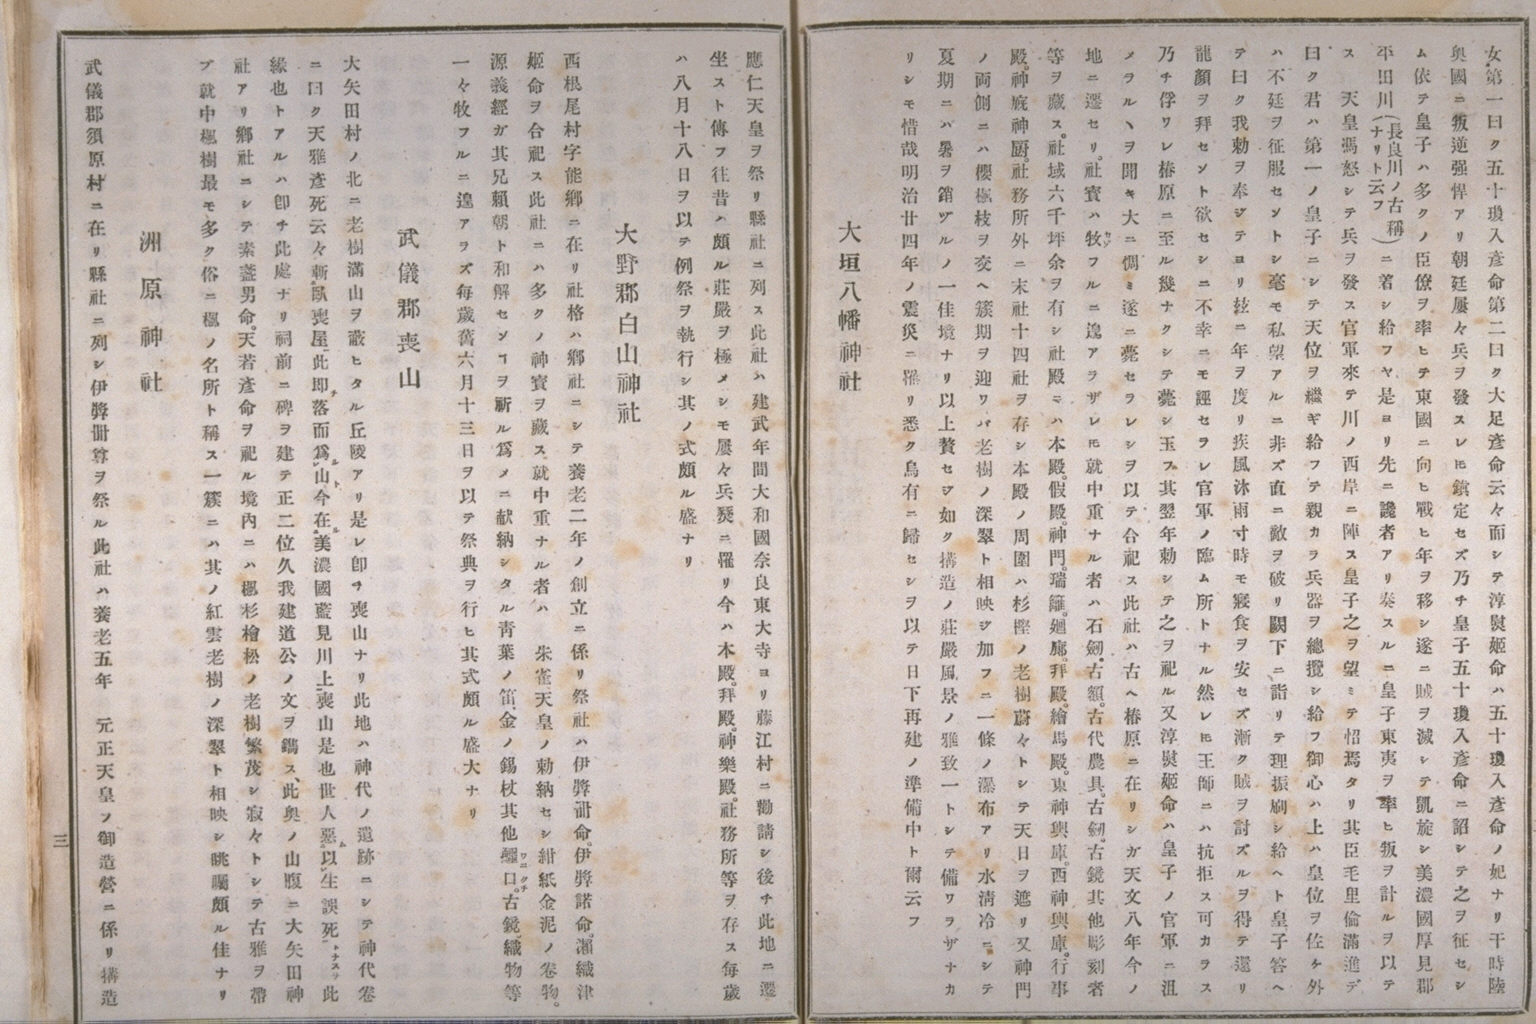 女第一曰ク五十瓊入彦命第二曰ク大足彦命云々而シテ淳熨姬命ハ五十瓊入彦命ノ妃ナリ干時陸
奥國ニ叛逆强悍アリ朝廷屢々兵ヲ發スレヒ鎮定セズ乃チ皇子五十瓊入彦命ニ詔シテ之ヲ征セシ
ム依テ皇子ハ多クノ臣僚ヲ率ヒテ東國ニ向ヒ戰ヒ年ヲ移シ遂ニ賊ヲ滅シテ凱旋シ美濃國厚見郡
平田川(長良川ノ古稱ナリト云フ)ニ着シ給フヤ是ヨリ先ニ讒者アリ奏スルニ皇子東夷ヲ率ヒ叛ヲ計ルヲ以テ
ス 天皇馮怒シテ兵ヲ發ス官軍來テ川ノ西岸ニ陣ス皇子之ヲ望ミテ怊焉タリ其臣毛里倫滿進デ
曰ク君ハ第一ノ皇子ニシテ天位ヲ繼ギ給フテ親カラ兵器ヲ總攬シ給フ御心ハ上ハ皇位ヲ佐ケ外
ハ不廷ヲ征服セントシ毫モ私望アルニ非ズ直ニ敵ヲ破リ闕下ニ詣リテ理振刷シ給ヘト皇子答ヘ
テ曰ク我勅ヲ奉ジテヨリ玆ニ年ヲ度リ疾風沐雨寸時モ寢食ヲ安セズ漸ク賊ヲ討ズルヲ得テ還リ
龍顏ヲ拜セント欲セシニ不幸ニモ誣セラレ官軍ノ臨ム所トナル然レヒ王師ニハ抗拒ス可カラス
乃チ俘ワレ椿原ニ至ル幾ナクシテ薨シ玉フ其翌年勅シテ之ヲ祀ル又淳熨姬命ハ皇子ノ官軍ニ沮
メラルヽヲ聞キ大ニ惆ミ遂ニ薨セラレシヲ以テ合祀ス此社ハ古ヘ椿原ニ在リシガ天文八年今ノ
地ニ遷セリ。社寶ハ牧フルニ遑アラザレヒ就中重ナル者ハ石劒。古額。古代農具。古劒。古鏡其他彫刻者
等ヲ藏ス。社域六千坪余ヲ有シ社殿ニハ本殿。假殿。神門。瑞籬。廻廊。拜殿。繪馬殿。東神輿庫。西神輿庫。行事
殿。神廐神厨。社務所外ニ末社十四社ヲ存シ本殿ノ周圍ハ杉樫ノ老樹蔚々トシテ天日ヲ遮リ又神門
ノ両側ニハ櫻楓枝ヲ交ヘ簇期ヲ迎ワバ老樹ノ深翠ト相映ジ加フニ一條ノ瀑布アリ水淸冷ニシテ
夏期ニハ暑ヲ銷ヅルノ一佳境ナリ以上贅セジ如ク搆造ノ莊嚴風景ノ雅致一トシテ備ワヲザナカ
リシモ惜哉明治廿四年ノ震災ニ罹リ悉ク烏有ニ歸セシヲ以テ日下再建ノ準備中ト爾云フ
大垣八幡神社
應仁天皇ヲ祭リ縣社ニ列ス此社ハ建武年間大和國奈良東大寺ヨリ藤江村ニ勸請シ後チ此地ニ遷
坐スト傳フ往昔ハ頗ル莊嚴ヲ極メシモ屢々兵燹ニ罹リ今ハ本殿。拜殿。神樂殿。社務所等ヲ存ス每歲
ハ八月十八日ヲ以テ例祭ヲ執行シ其ノ式頗ル盛ナリ
大野郡白山神社
西根尾村字能鄉ニ在リ社格ハ鄉社ニシテ養老二年ノ創立ニ係リ祭社ハ伊弉冊命。伊弉諾命。瀬織津
姬命ヲ合祀ス此社ニハ多クノ神寶ヲ藏ス就中重ナル者ハ 朱雀天皇ノ勅納セシ紺紙金泥ノ卷物。
源義經ガ其兄賴朝ト和解センヿヲ祈ル爲メニ献納シタル靑葉ノ笛。金ノ錫杖其他鰐口。古鏡。織物等
一々牧フルニ遑アヲズ每歲舊六月十三日ヲ以テ祭典ヲ行ヒ其式頗ル盛大ナリ
武儀郡喪山
大矢田村ノ北ニ老樹滿山ヲ蔽ヒタル丘陵アリ是レ卽チ喪山ナリ此地ハ神代ノ遺跡ニシテ神代卷
ニ曰ク天雅彥死云々斬臥喪屋此即落而爲山今在美濃國藍見川上喪山是也世人惡以生誤死トナスヲ此
緣也トアルハ卽チ此處ナリ祠前ニ碑ヲ建テ正二位久我建道公ノ文ヲ鐫ス、此奥ノ山腹ニ大矢田神
社アリ鄉社ニシテ素盞男命。天若彥命ヲ祀ル境內ニハ楓杉檜松ノ老樹繁茂シ寂々トシテ古雅ヲ帶
ブ就中楓樹最モ多ク俗ニ楓ノ名所ト稱ス一簇ニハ其ノ紅雲老樹ノ深翠ト相映シ眺矚頗ル佳ナリ
洲原神社
武儀郡須原村ニ在リ縣社ニ列シ伊弉冊尊ヲ祭ル此社ハ養老五年 元正天皇ノ御造營ニ係リ搆造
三